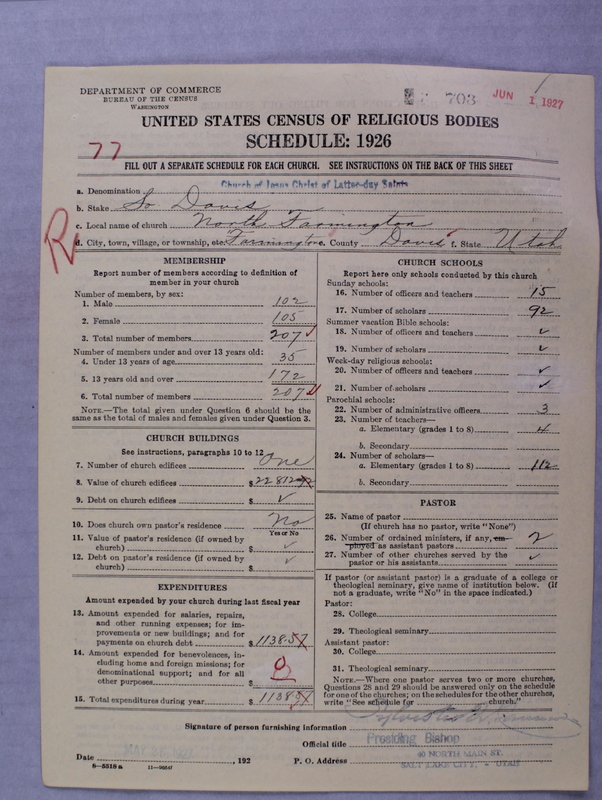 DEPARTMENT OF COMMERCE
BUREAU OF THE CENSUS
WASHINGTON
703
JUN 1 1927
UNITED STATES CENSUS OF RELIGIOUS BODIES
SCHEDULE: 1926
77
FILL OUT A SEPARATE SCHEDULE FOR EACH CHURCH. SEE INSTRUCTIONS ON THE BACK OF THIS SHEET
a. Denomination Church of Jesus Christ of Latter-day Saints
b. Stake So Davis
c. Local name of church North Farmington
R
d. City, town, village, or township, etc. Farmington e. County Davis f. State Utah
MEMBERSHIP
Report number of members according to definition of
member in your church
Number of members, by sex:
1. Male 102
2. Female 105
3. Total number of members 207 ✓
Number of members under and over 13 years old:
4. Under 13 years of age 35
5. 13 years old and over 172
6. Total number of members 207 ✓
NOTE.—The total given under Question 6 should be the
same as the total of males and females given under Question 3.
CHURCH BUILDINGS
See instructions, paragraphs 10 to 12
7. Number of church edifices One
8. Value of church edifices $ 22812
9. Debt on church edifices $ ✓
10. Does church own pastor's residence No
Yes or No
11. Value of pastor's residence (if owned by
church) $ ✓
12. Debt on pastor's residence (if owned by
church) $ ✓
EXPENDITURES
Amount expended by your church during last fiscal year
13. Amount expended for salaries, repairs,
and other running expenses; for im-
provements or new buildings; and for
payments on church debt $ 1138.57
14. Amount expended for benevolences, in-
cluding home and foreign missions; for
denominational support; and for all
other purposes $ 0
15. Total expenditures during year $ 1138
CHURCH SCHOOLS
Report here only schools conducted by this church
Sunday schools:
16. Number of officers and teachers 15
17. Number of scholars 92
Summer vacation Bible schools:
18. Number of officers and teachers ✓
19. Number of scholars ✓
Week-day religious schools:
20. Number of officers and teachers ✓
21. Number of scholars ✓
Parochial schools:
22. Number of administrative officers 3
23. Number of teachers—
a. Elementary (grades 1 to 8) 4
b. Secondary
24. Number of scholars—
a. Elementary (grades 1 to 8) 112
b. Secondary
PASTOR
25. Name of pastor
(If church has no pastor, write "None")
26. Number of ordained ministers, if any, em-
ployed as assistant pastors 2
27. Number of other churches served by the
pastor or his assistants ✓
If pastor (or assistant pastor) is a graduate of a college or
theological seminary, give name of institution below. (If
not a graduate, write "No" in the space indicated.)
Pastor:
28. College
29. Theological seminary
Assistant pastor:
30. College
31. Theological seminary
NOTE.—Where one pastor serves two or more churches,
Questions 28 and 29 should be answered only on the schedule
for one of the churches; on the schedules for the other churches,
write "See schedule for church."
Signature of person furnishing information
Official title Presiding Bishop
Date , 192
P. O. Address 40 NORTH MAIN ST.
SALT LAKE CITY, - UTAH
8—5518 a